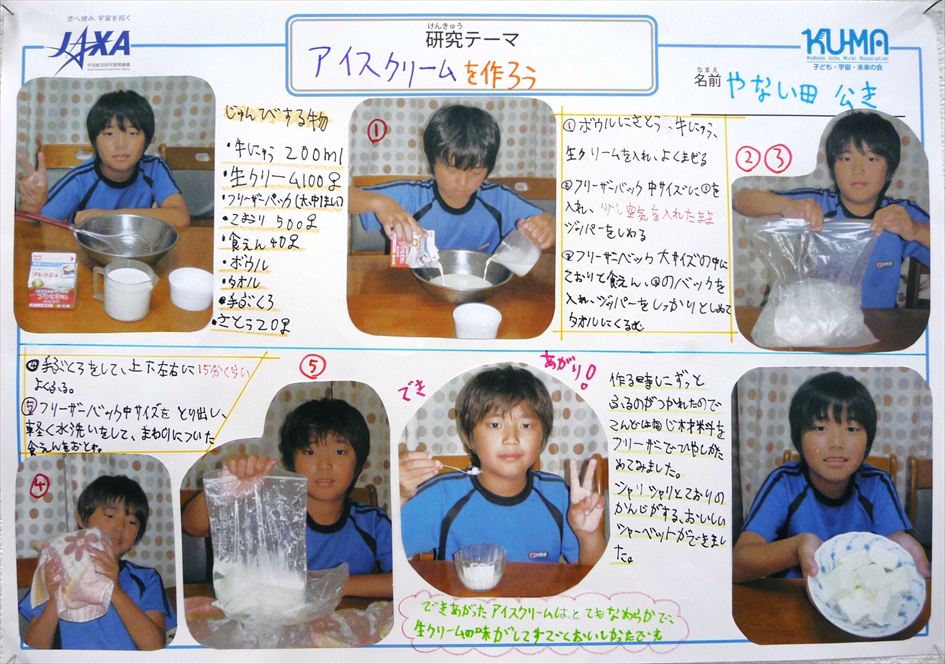 空へ挑み、宇宙を拓く
JAXA
宇宙航空研究開発機構
けんきゅう
研究テーマ
アイスクリームを作ろう
KU-MA
Kodomo Uchu Mirai Association
子ども・宇宙・未来の会
なまえ
名前 やない田 公き
じゅんびする物
・牛にゅう 200ml
・生クリーム100g
・フリーザーパック(大、中1まい)
・こおり 500g
・食えん 40g
・ボウル
・タオル
●手ぶくろ
・さとう20g
①
①ボウルにさとう、牛にゅう、
生クリームを入れ、よくまぜる
②フリーザーバック中サイズに①を
入れ、少し空気を入れたまま
ジッパーをしめる
③フリーザーバック大サイズの中に
こおりと食えん、②のバックを
入れ、ジッパーをしっかりとしめて
タオルにくるむ
②③
④手ぶくろをして、上下左右に15分くらい
よくふる。
⑤フリーザーバック中サイズをとり出し、
軽く水洗いをして、まわりについた
食えんをおとす。
④
⑤
でき
あがり!
作る時にずっと
ふるのがつかれたので
こんどは同じ材料を
フリーザーでひやしかた
めてみました。
シャリシャリとこおりの
かんじがする、おいしい
シャーベットができまし
た。
できあがったアイスクリームは、とてもなめらかで、
生クリームの味がしてすごくおいしかったです